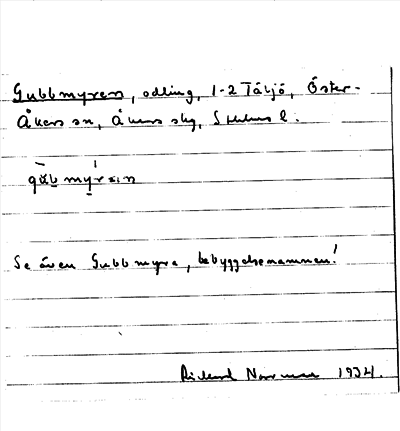 Gubbmyren, odling, 1-2 Täljö, Öster-
Åkers sn, Åkers skg, Sthlms l.
gŭbmýrεn
Se även Gubbmyra, bebyggelsenamnen!
Rickard Norrman 1934.